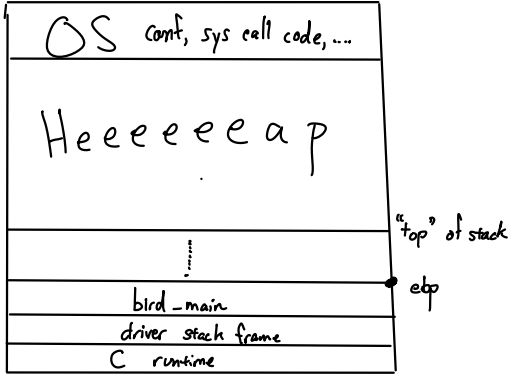 OS conf, sys call code, ....
Heeeeeeap
"top" of stack
ebp
bird_main
driver stack frame
C runtime